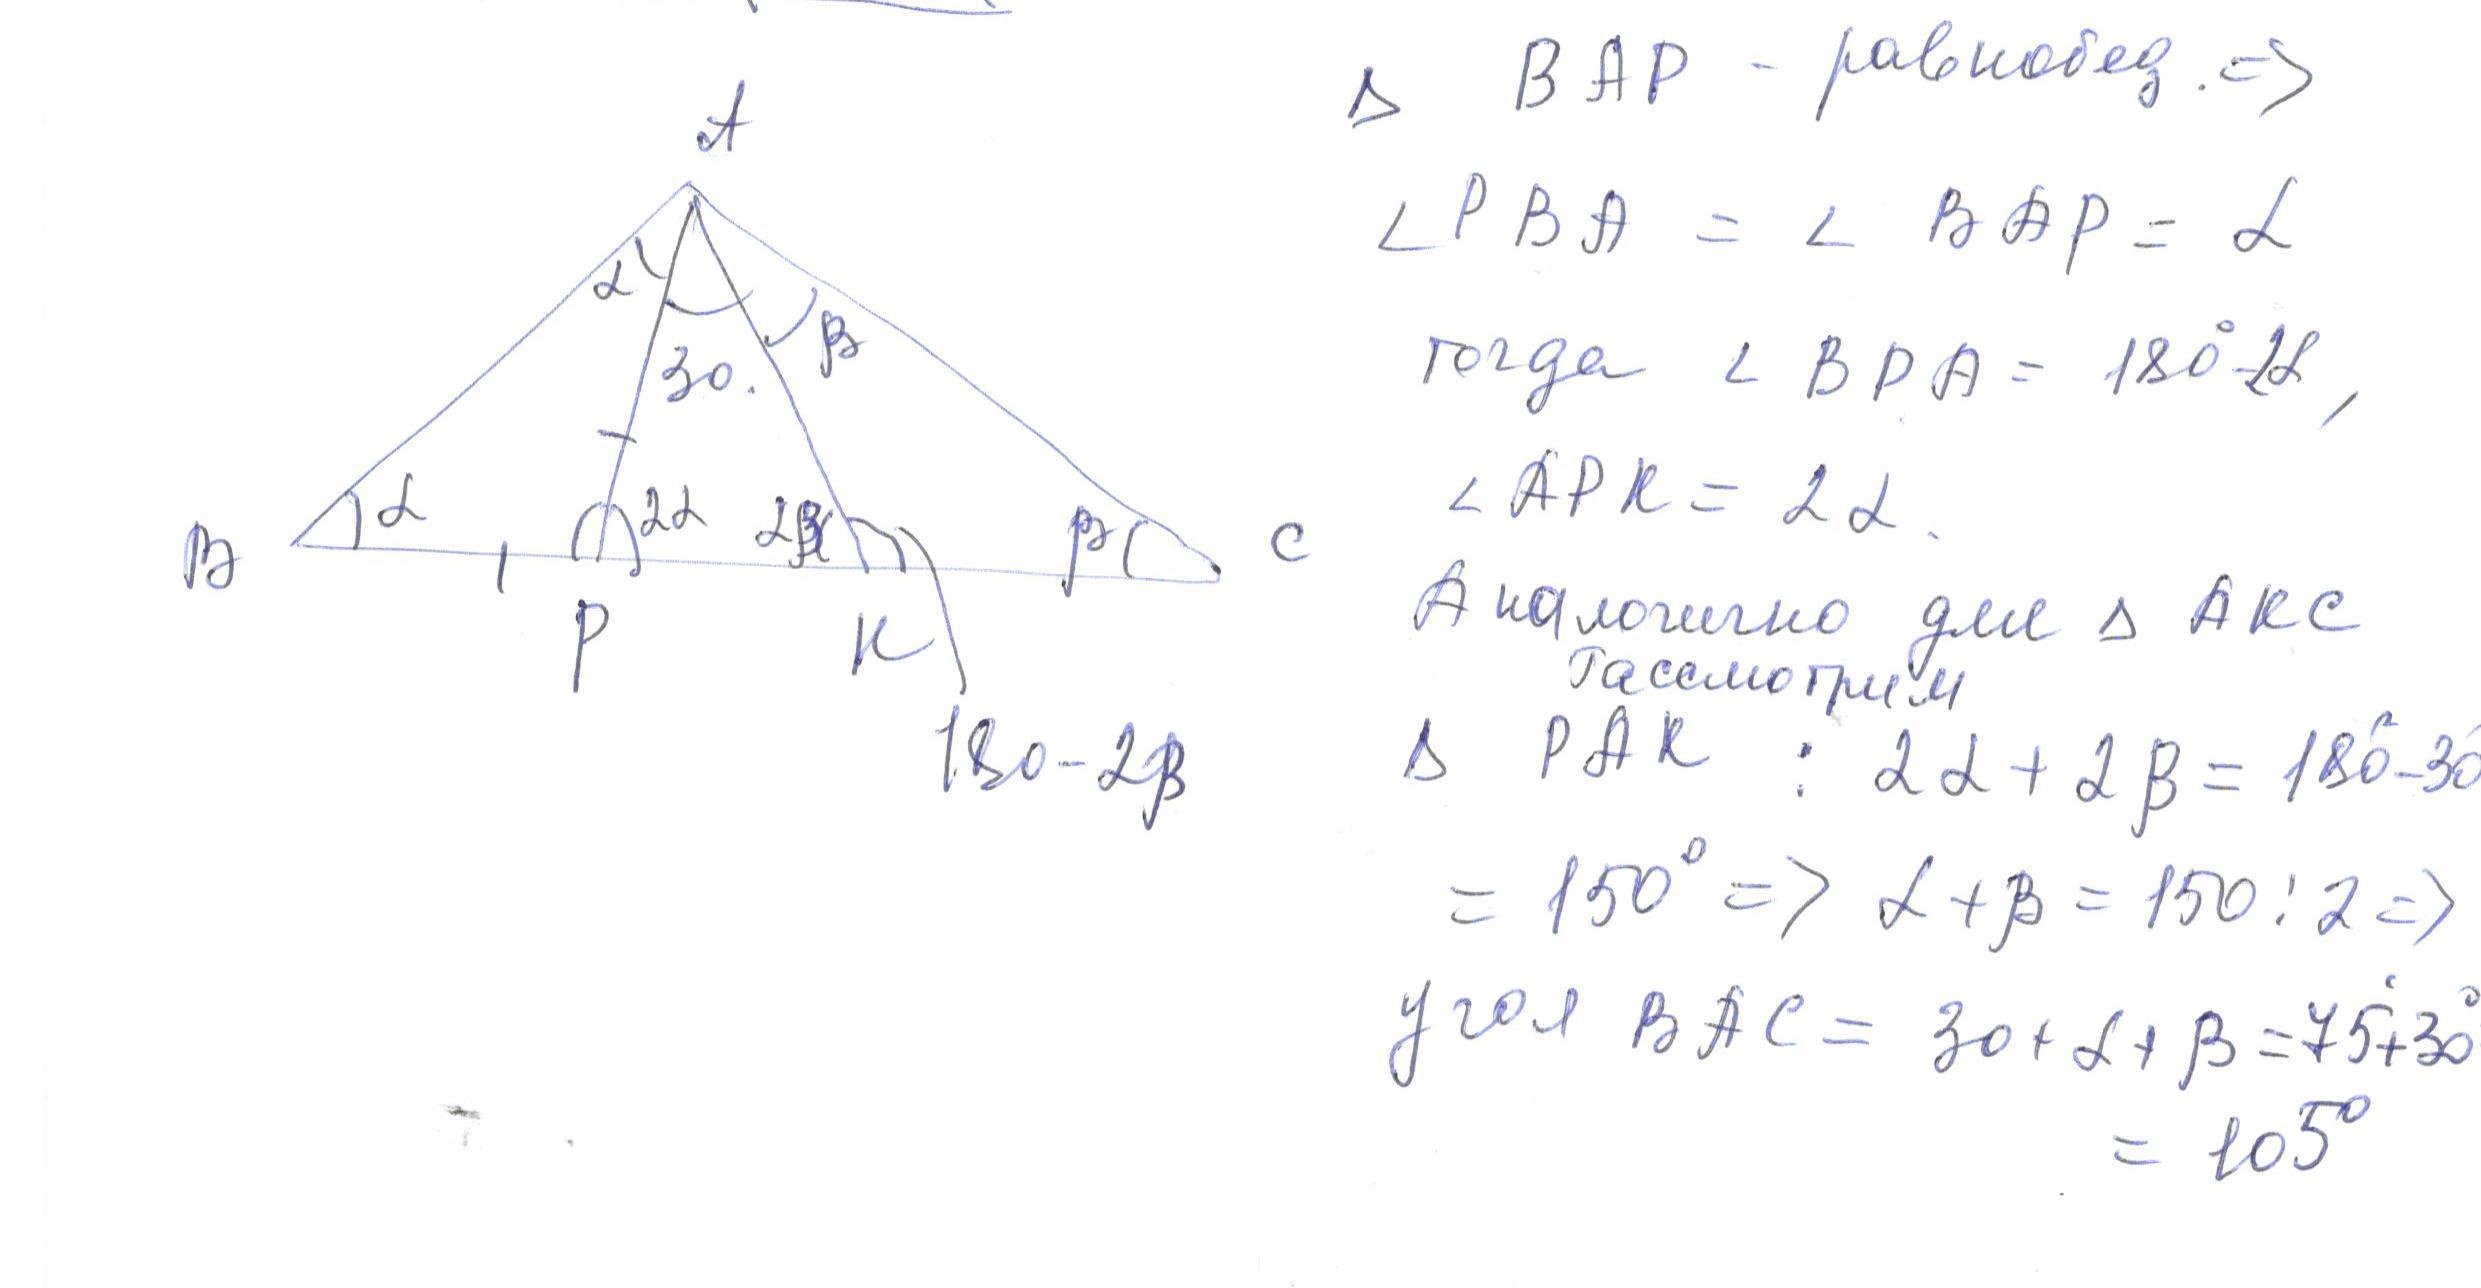 A
α
β
30.
α
2α
2β
β
B
C
P
K
180-2β
Δ BAP - равнобед. =>
∠PBA = ∠BAP = α
тогда ∠BPA = 180°-2α,
∠APK = 2α.
Аналогично для Δ AKC
Рассмотрим
Δ PAK : 2α + 2β = 180°-30
= 150° => α + β = 150 : 2 =>
угол BAC = 30 + α + β = 75°+30°
= 105°